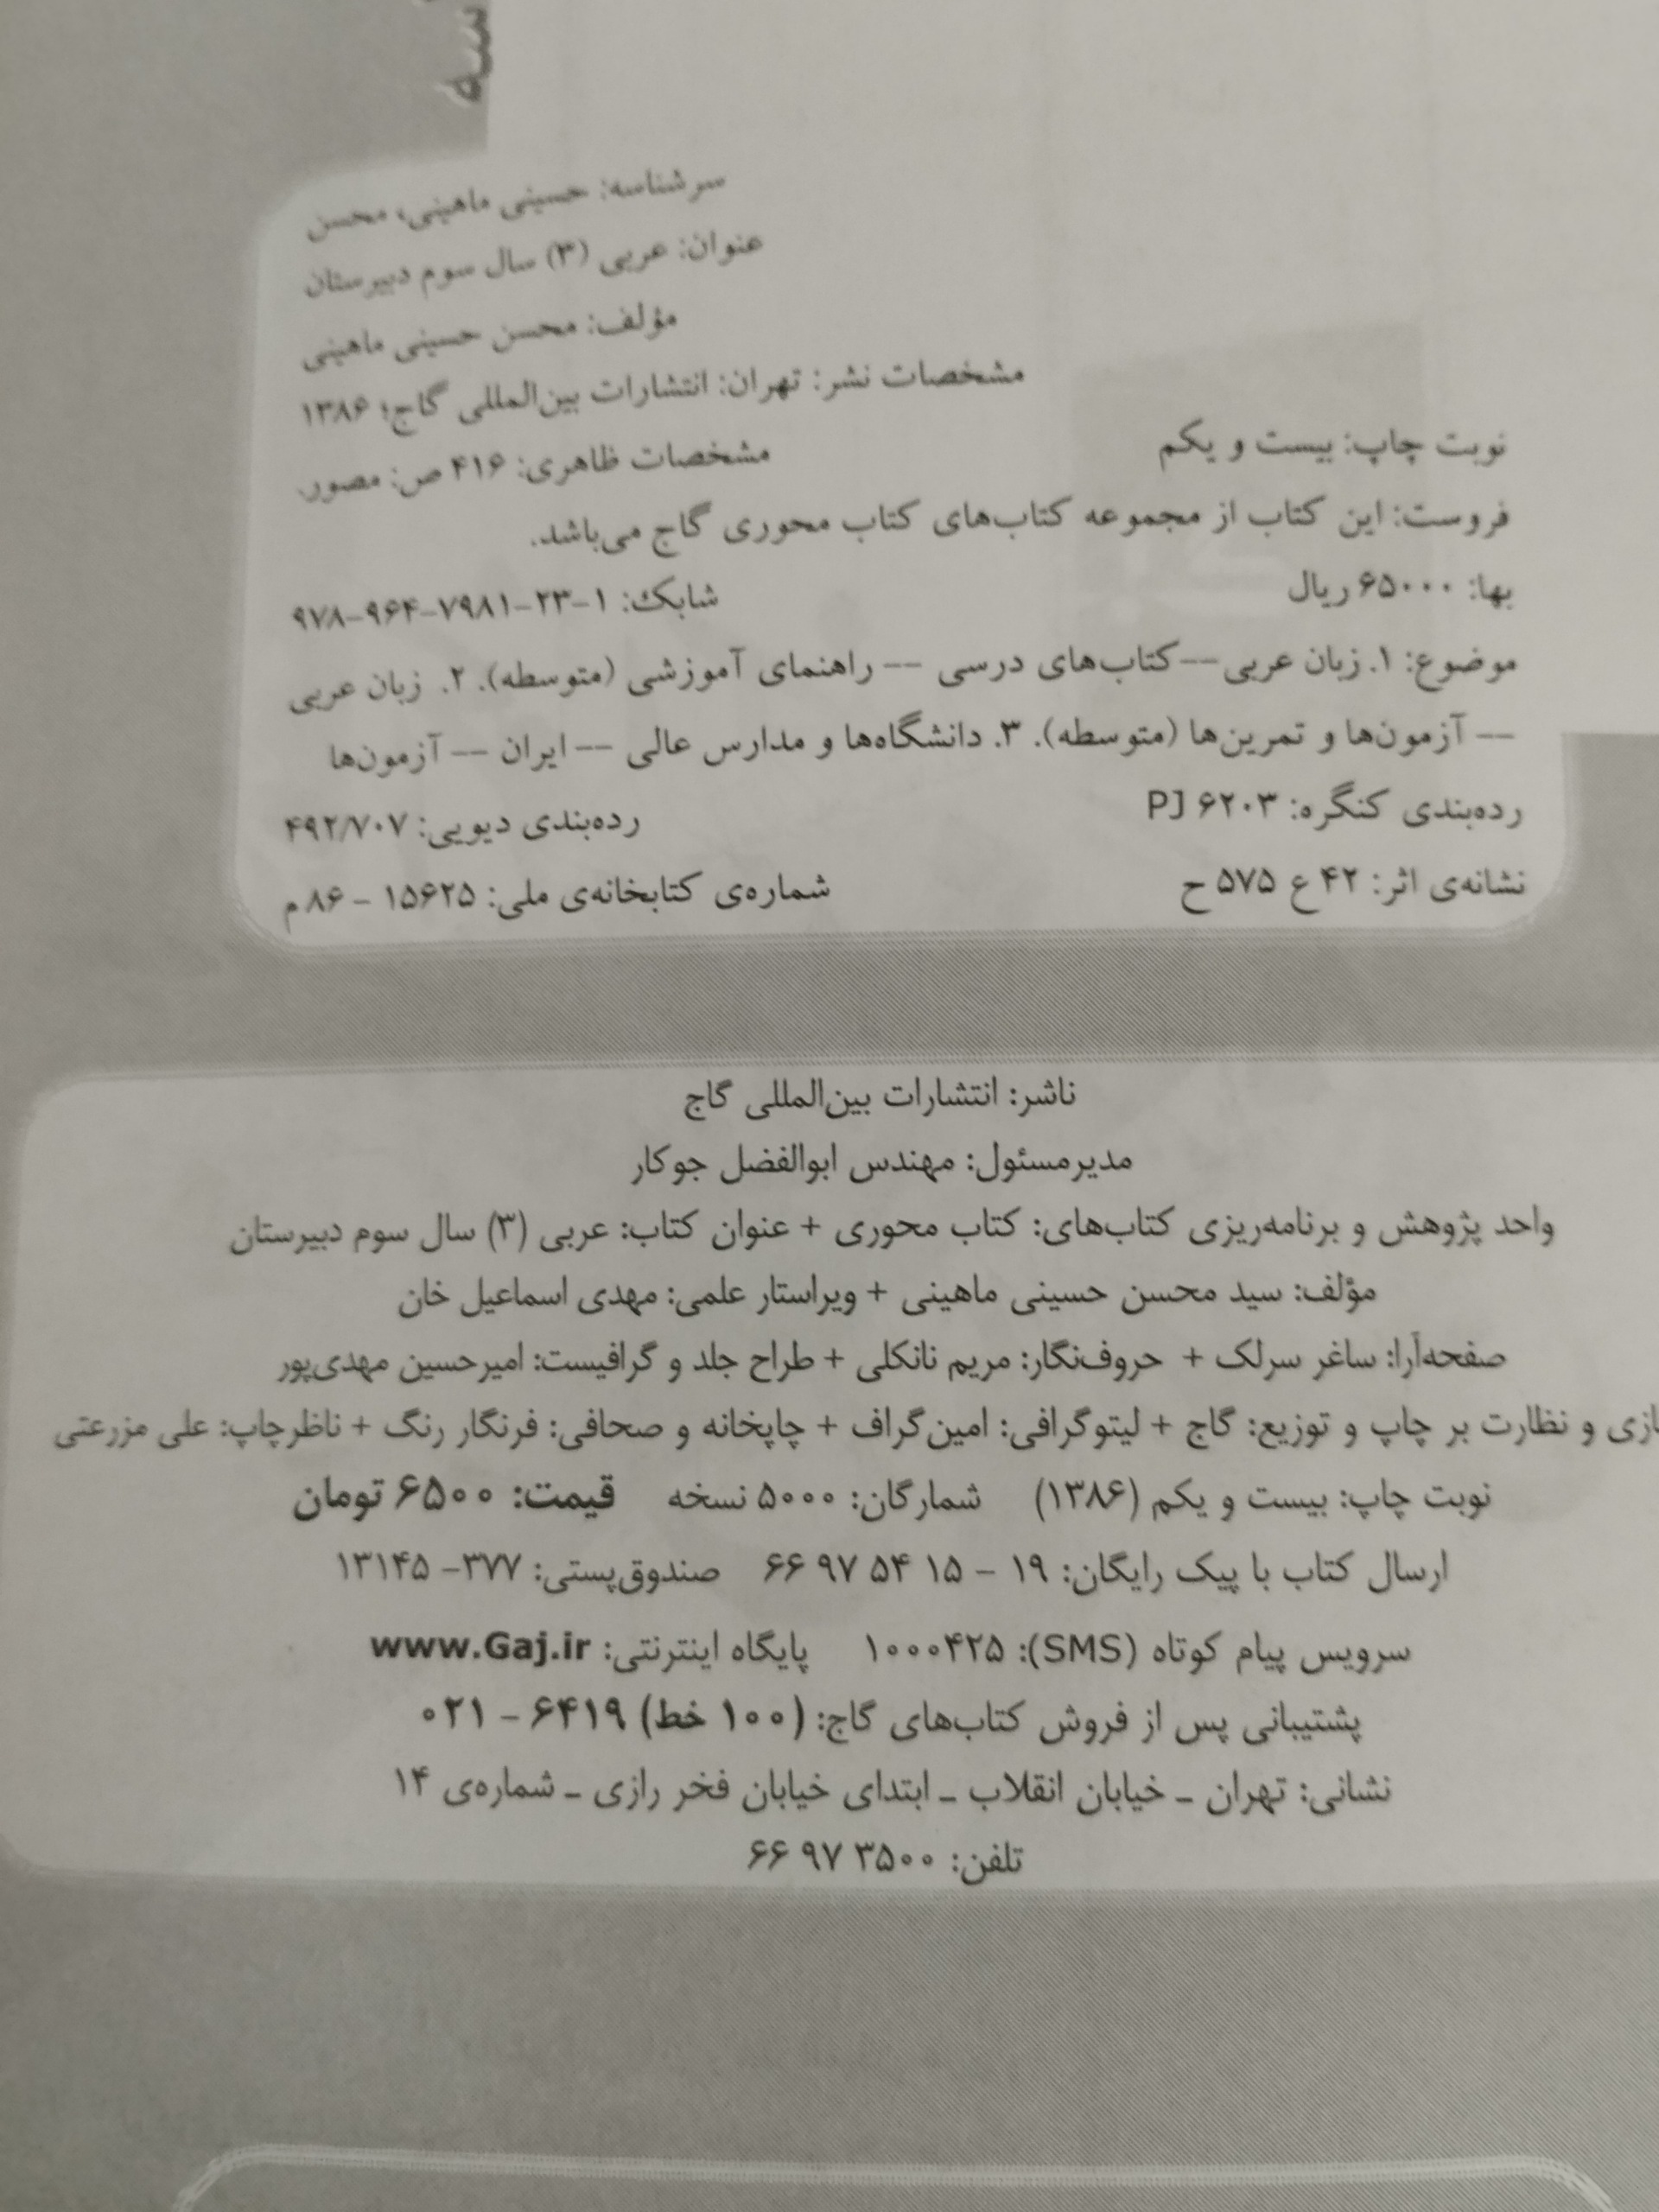 سرشناسه: حسینی ماهینی، محسن
عنوان: عربی (۳) سال سوم دبیرستان
مؤلف: محسن حسینی ماهینی
مشخصات نشر: تهران: انتشارات بین‌المللی گاج؛ ۱۳۸۶
نوبت چاپ: بیست و یکم مشخصات ظاهری: ۴۱۶ ص: مصور.
فروست: این کتاب از مجموعه کتاب‌های کتاب محوری گاج می‌باشد.
بها: ۶۵۰۰۰ ریال شابک: ۱-۲۳-۷۹۸۱-۹۶۴-۹۷۸
موضوع: ۱. زبان عربی -- کتاب‌های درسی -- راهنمای آموزشی (متوسطه). ۲. زبان عربی
-- آزمون‌ها و تمرین‌ها (متوسطه). ۳. دانشگاه‌ها و مدارس عالی -- ایران -- آزمون‌ها
رده‌بندی کنگره: PJ ۶۲۰۳ رده‌بندی دیویی: ۴۹۲/۷۰۷
نشانه‌ی اثر: ۴۲ ع ۵۷۵ ح شماره‌ی کتابخانه‌ی ملی: ۱۵۶۲۵ - ۸۶ م
ناشر: انتشارات بین‌المللی گاج
مدیرمسئول: مهندس ابوالفضل جوکار
واحد پژوهش و برنامه‌ریزی کتاب‌های: کتاب محوری + عنوان کتاب: عربی (۳) سال سوم دبیرستان
مؤلف: سید محسن حسینی ماهینی + ویراستار علمی: مهدی اسماعیل خان
صفحه‌آرا: ساغر سرلک + حروف‌نگار: مریم نانکلی + طراح جلد و گرافیست: امیرحسین مهدی‌پور
ازی و نظارت بر چاپ و توزیع: گاج + لیتوگرافی: امین‌گراف + چاپخانه و صحافی: فرنگار رنگ + ناظرچاپ: علی مزرعتی
نوبت چاپ: بیست و یکم (۱۳۸۶) شمارگان: ۵۰۰۰ نسخه قیمت: ۶۵۰۰ تومان
ارسال کتاب با پیک رایگان: ۱۹ - ۱۵ ۵۴ ۹۷ ۶۶ صندوق‌پستی: ۳۷۷- ۱۳۱۴۵
سرویس پیام کوتاه (SMS): ۱۰۰۰۴۲۵ پایگاه اینترنتی: www.Gaj.ir
پشتیبانی پس از فروش کتاب‌های گاج: (۱۰۰ خط) ۶۴۱۹ - ۰۲۱
نشانی: تهران ـ خیابان انقلاب ـ ابتدای خیابان فخر رازی ـ شماره‌ی ۱۴
تلفن: ۳۵۰۰ ۹۷ ۶۶